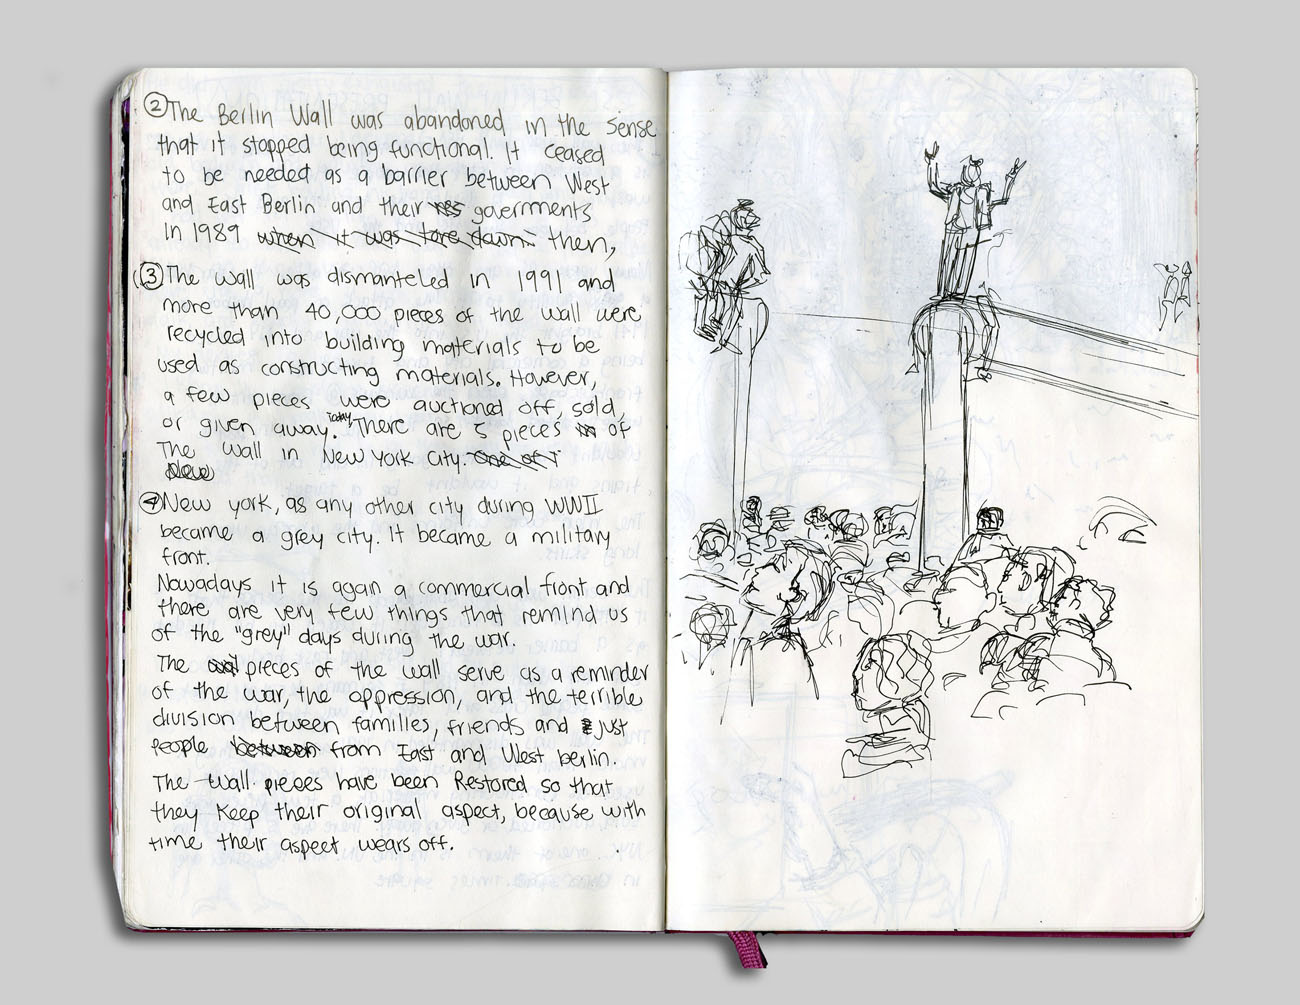 ② The Berlin Wall was abandoned in the sense
that it stopped being functional. It ceased
to be needed as a barrier between West
and East Berlin and their goverments
in 1989 when it was tore down. then,
③ The wall was dismanteled in 1991 and
more than 40,000 pieces of the wall were
recycled into building materials to be
used as constructing materials. However,
a few pieces were auctioned off, sold,
or given away. Today There are 5 pieces of
The wall in New York City. One of
④ New york, as any other city during WWII
became a grey city. It became a military
front.
Nowadays it is again a commercial front and
there are very few things that remind us
of the "grey" days during the war.
The pieces of the wall serve as a reminder
of the war, the oppression, and the terrible
division between families, friends and just
people between from East and West berlin.
The wall pieces have been Restored so that
they keep their original aspect, because with
time their aspect wears off.